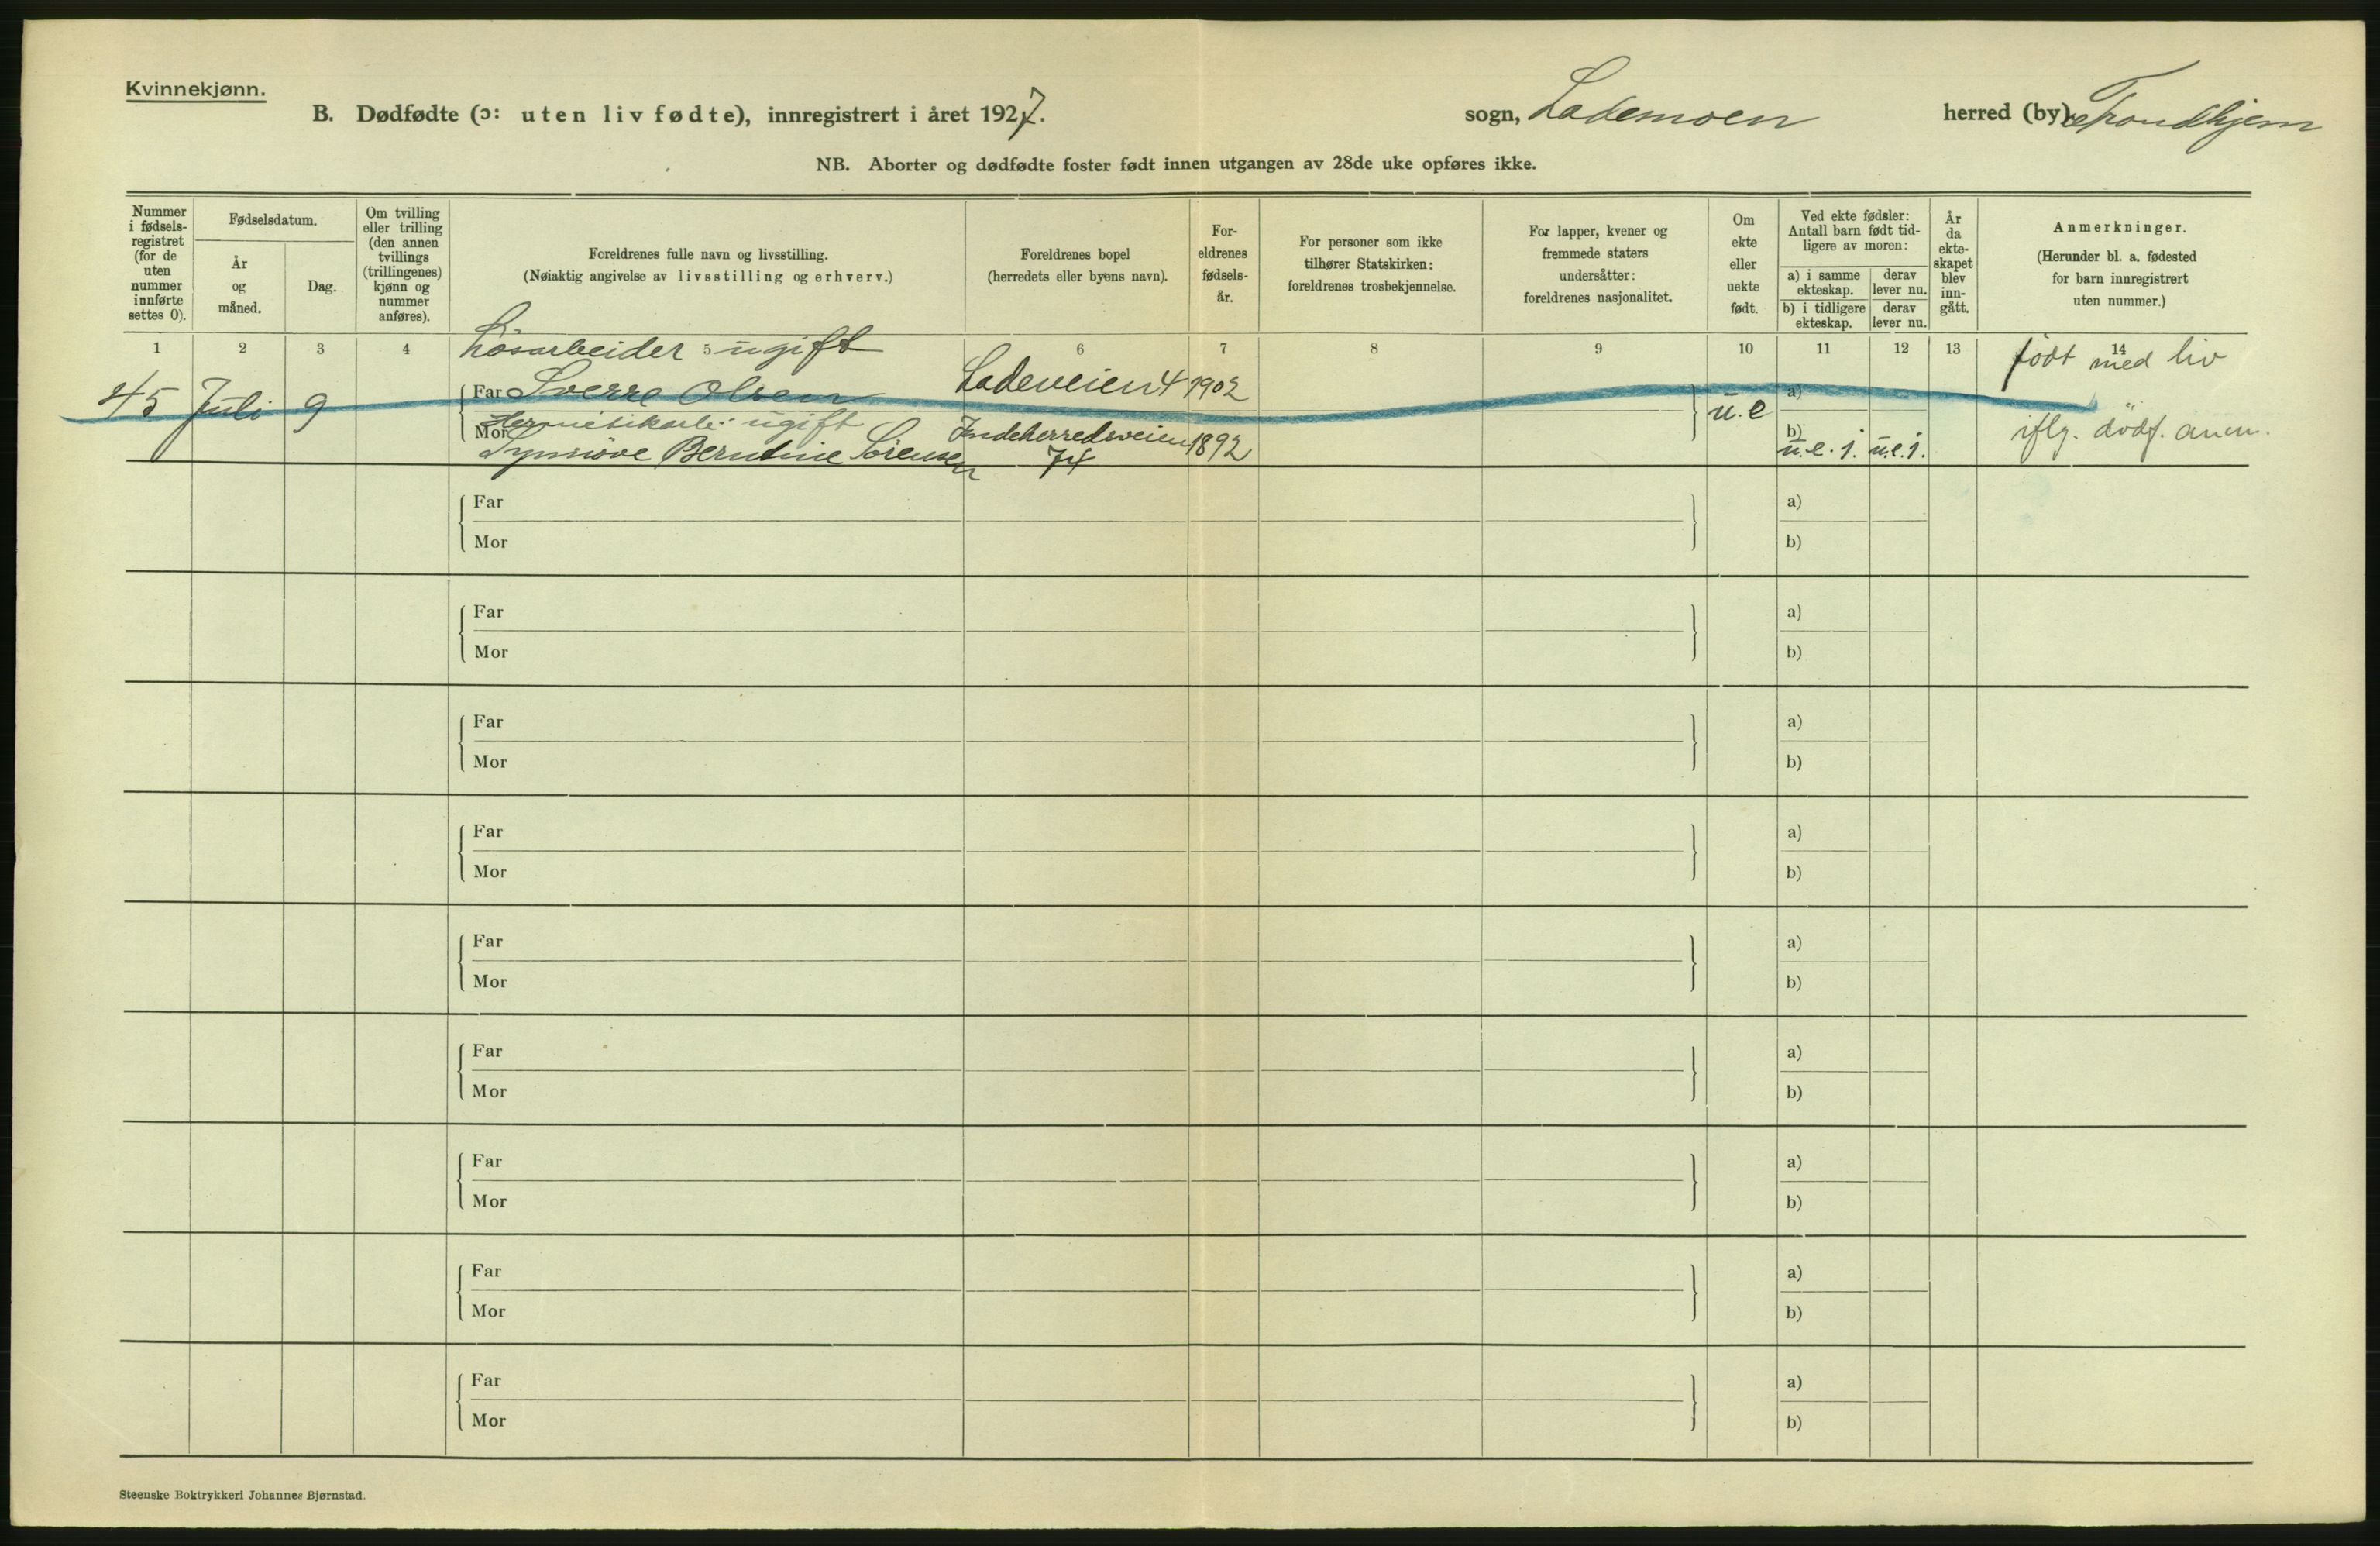 Kvinnekjønn.
B. Dødfødte (ɔ: uten liv fødte), innregistrert i året 1927.
sogn, Lademoen
herred (by), Trondhjem
NB. Aborter og dødfødte foster født innen utgangen av 28de uke opføres ikke.
Nummer
i fødsels-
registret
(for de
uten
nummer
innførte
settes 0).
Fødselsdatum.
År
og
måned.
Dag.
Om tvilling
eller trilling
(den annen
tvillings
(trillingenes)
kjønn og
nummer
anføres).
Foreldrenes fulle navn og livsstilling.
(Nøiaktig angivelse av livsstilling og erhverv.)
Foreldrenes bopel
(herredets eller byens navn).
For-
eldrenes
fødsels-
år.
For personer som ikke
tilhører Statskirken:
foreldrenes trosbekjennelse.
For lapper, kvener og
fremmede staters
undersåtter:
foreldrenes nasjonalitet.
Om
ekte
eller
uekte
født.
Ved ekte fødsler:
Antall barn født tid-
ligere av moren:
a) i samme
ekteskap.
derav
lever nu.
b) i tidligere
ekteskap.
derav
lever nu.
År
da
ekte-
skapet
blev
inn-
gått.
Anmerkninger.
(Herunder bl. a. fødested
for barn innregistrert
uten nummer.)
1 2 3 4 5 6 7 8 9 10 11 12 13 14
Løsarbeider ugift
født med liv
45 Juli 9
Far Sverre Olsen Ladeveien 4 1902
a)
u.e
Hermetikarb. ugift
Mor Synnøve Berntine Sørensen Indeherredsveien 74 1892
b) u.e. 1. u.e. 1.
iflg. dødf. anm.
Far a)
Mor b)
Far a)
Mor b)
Far a)
Mor b)
Far a)
Mor b)
Far a)
Mor b)
Far a)
Mor b)
Far a)
Mor b)
Far a)
Mor b)
Far a)
Mor b)
Steenske Boktrykkeri Johannes Bjørnstad.